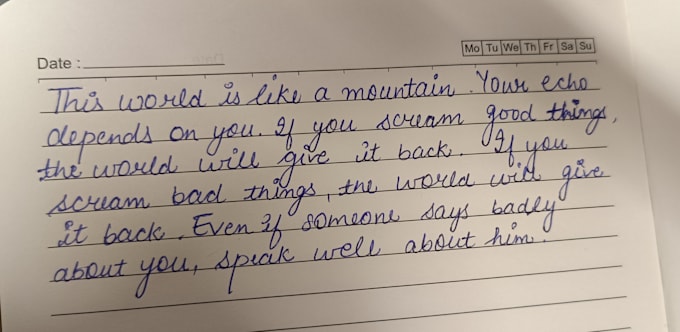 Date :
Mo Tu We Th Fr Sa Su
This world is like a mountain. Your echo
depends on you. If you scream good things,
the world will give it back. If you
scream bad things, the world will give
it back. Even if someone says badly
about you, speak well about him.